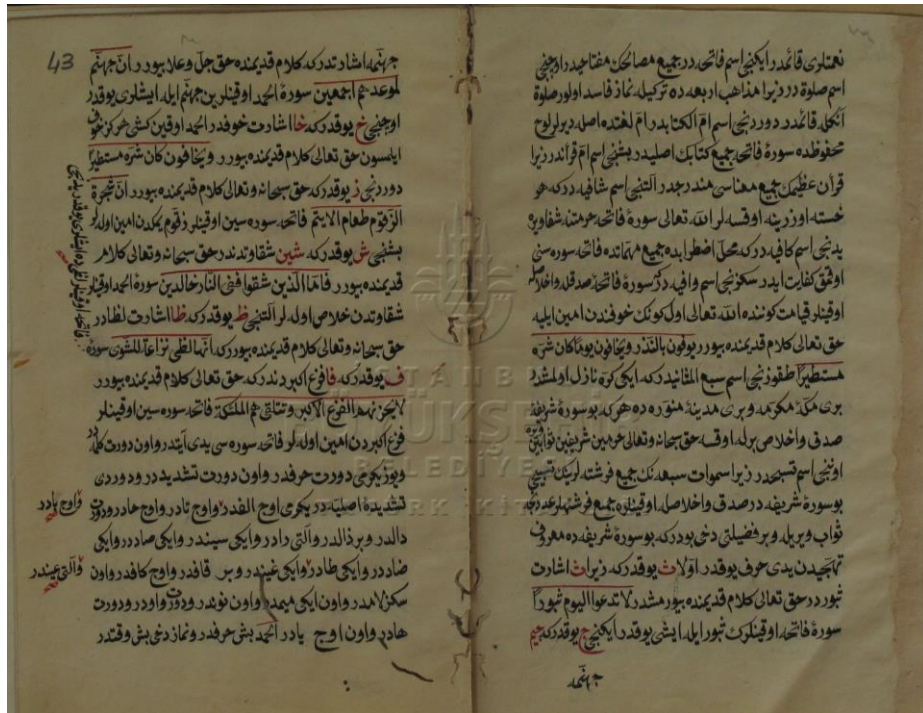 نعمتلری قائمدر ایکنجی اسم فاتحه در جمیع مصالحك مفتاحیدر اوچنجی
اسم صلوة در زیرا مذاهب اربعه ده ترکیله نماز فاسد اولور صلوة
آنکله قائمدر دوردنجی اسم ام الکتابدر ام لغتده اصله دیرلر لوح
محفوظده سورۀ فاتحه جمیع کتابك اصلیدر بشنجی اسم ام قرآندر زیرا
قرآن عظیمك جمیع معناسی مندرجدر آلتنجی اسم شافیه در که هر
خسته اوزرینه اوقسه لر الله تعالی سورۀ فاتحه حرمتنه شفا ویره
یدنجی اسم کافیه در که محل اضطرابده جمیع مهماتده فاتحه سوره سنی
اوقمق کفایت ایدر سکزنجی اسم وافیه در که سورۀ فاتحه صدقله واخلاصله
اوقینلر قیامت کوننده الله تعالی اول کونك خوفندن امین ایلیه
حق تعالی کلام قدیمنده بیورر یوفون بالنذر ویخافون یوما کان شره
مستطیرا طقوزنجی اسم سبع المثانیدر که ایکی کره نازل اولمشدر
بری مکۀ مکرمه وبری مدینۀ منوره ده هر که بو سورۀ شریفۀ
صدق واخلاص برله اوقسه حق سبحانه وتعالی حرمین شریفین ثوابین ویره
اوننجی اسم تسبیحدر زیرا سموات سبعه نك جمیع فرشته لرینك تسبیحی
بو سورۀ شریفه در صدق واخلاصله اوقینلره جمیع فرشتهلر عددنجه
ثواب ویریله وبر فضیلتی دخی بودر که بو سورۀ شریفه ده معروف
تهجیدن یدی حرف یوقدر اولا ث یوقدر که زیرا ث اشارت
ثبوردر حق تعالی کلام قدیمنده بیورمشدر لا تدعوا الیوم ثبورا
سورۀ فاتحه اوقینلرك ثبور ایله ایشی یوقدر ایکنجی ج یوقدر که جیم
جهنمه
43
جهنمه اشارتدر که کلام قدیمنده حق جل وعلا بیورر ان جهنم
لموعدهم اجمعین سورۀ الحمد اوقینلرین جهنم ایله ایشلری یوقدر
اوچنجی خ یوقدر که خا اشارت خوفدر الحمد اوقین کشی هرکز خوف
ایلمسون حق تعالی کلام قدیمنده بیورر ویخافون کان شره مستطیرا
دوردنجی ز یوقدر که حق سبحانه وتعالی کلام قدیمنده بیورر ان شجرة
الزقوم طعام الاثیم فاتحه سوره سین اوقینلر زقوم یمکدن امین اوله لر
بشنجی ش یوقدر که شین شقاوتدندر حق سبحانه وتعالی کلام
قدیمنده بیورر فاما الذین شقوا ففی النار خالدین سورۀ الحمد اوقینلر
شقاوتدن خلاص اوله لر آلتنجی ظ یوقدر که ظا اشارت لظادر
حق سبحانه وتعالی کلام قدیمنده بیورر که انها لظی نزاعة للشوی سورۀ
فاتحه اوقینلرك لظی ده ایشلری یوقدر یدنجی
ف یوقدر که فا فزع اکبردندر که حق تعالی کلام قدیمنده بیورر
لا یحزنهم الفزع الاکبر وتتلقیهم الملئکة فاتحه سوره سین اوقینلر
فزع اکبردن امین اوله لر فاتحه سوره سی یدی آیتدر واون دورت کلمه در
ویوز یکرمی دورت حرفدر واون دورت تشدیددر ودوردی
تشدیدۀ اصلیه در یکرمی اوچ الفدر واوچ تادر واوچ هادر ودورت
واوچ یادر
دالدر وبر ذالدر والتی رادر وایکی سیندر وایکی صاددر وایکی
ضاددر وایکی طادر وایکی غیندر وبر قافدر واوچ کافدر واون
والتی عیندر
سکز لامدر واون ایکی میمدر واون نوندر ودورت واودر ودورت
هادر واون اوچ یادر الحمد بش حرفدر ونماز دخی بش وقتدر